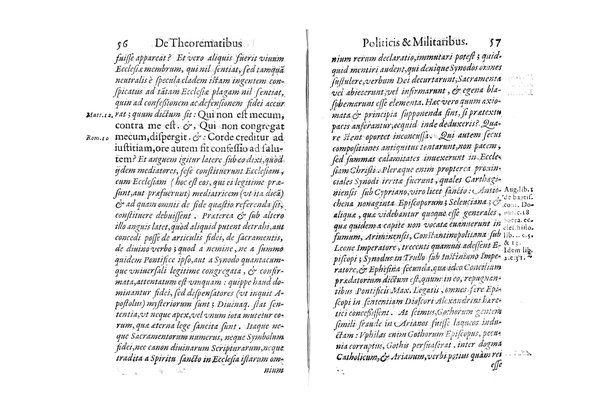 56 De Theorematibus
fuisse apparcat? Et vero aliquis fuerit vivum
Ecclesiæ membrum, qui nil sentiat, sed tamquã
neutralis è specula cladem istam ingentem con-
spicatus ad tãtam Ecclesiæ plagam nil sentiat,
quin ad confessionem ac defensionem fidei accur
Matt. 12. rat; quum dictum sit: Qui non est mecum,
contra me est. &, Qui non congregat
Rom. 10 mecum, dispergit. &: Corde creditur ad
iustitiam, ore autem fit confessio ad salu-
tem? En augurem igitur latere sub eo dixi, quòd
ijdem mediatores, sese constituerunt Ecclesiam,
eum Ecclesiam (hoc est eos, qui ei legitime præ-
sunt, aut præfuerunt) mediatores (vt ita dicã)
& ad quam omnis de fide quæstio referenda sit,
constituere debuissent. Præterea & sub altero
illo anguis latet, quòd aliquid putent detrahi, aut
concedi posse de articulis fidei, de sacramentis,
de divino verbo; quod à nemine, ne à summo
quidem Pontifice ipso, aut a Synodo quantacum-
que vniuersali legitime congregata, & confir-
mata, attentatum est vmquam: quippe haud do-
minantur fidei, sed dispensatores (vt inquit A-
postolus) mysteriorum sunt; Diuinaq. stat sen-
tentia, vt neque apex, vel vnum iota mutetur eo-
rum, quæ æterna lege sancita sunt. Itaque ne-
que Sacramentorum numerus, neque Symbolum
fidei, nec canon diuinarum Scripturarum, neque
tradita a Spiritu sancto in Ecclesia istarum om-
nium
Politicis & Militaribus. 57
nium rerum declaratio, immutari potest; quid-
quid mentiri audent, qui denique Synodos omnes
sustulere, verbum Dei decurtarunt, Sacramenta
vel abiecerunt, vel infirmarunt, & egena bla-
sphemarunt esse elementa. Hæc vero quum axio-
mata & principia supponenda sint, si prætextu
pacis auferantur, ecquid inde deduxeris? Qua-
re et in conuentum oculos. Qui autem secus
compositiones antiquitus tentarunt, non pacem,
sed summas calamitates inuexerunt in Eccle-
siam Christi. Pleræque enim propterea prouin-
ciales Synodi irritæ fuerunt, quales Carthagi-
niensis sub Cypriano, viro licet sancto: Antio-
chena nonaginta Episcoporum; Seleuciana; &
aliqua, quæ videbantur quoque esse generales,
quæ quidem à capite non vocata euanuerunt in
fumum, Ariminensis, Constantinopolitana sub
Leone Imperatore, trecenti quamuis adessent E-
piscopi; Synodus in Trullo sub Iustiniano Impe-
ratore, & Ephesina secunda, quæ adeo Concilium
prædatorium dictum est, quum in eo, repugnan-
tibus Pontificis Max. Legatis, omnes fere Epi-
scopi in sententiam Dioscori Alexandrini hære-
tici concessissent. At Gothorum est gentem
simili fraude in Arianos fuisse laqueos induc-
tam: Vphilas enim Gothorum Episcopus, pecu-
nia corruptus, Gothis persuaserat, inter dogma
Catholicum, & Arianum, verbi potius quàm rei
esse
Aug. lib. 1